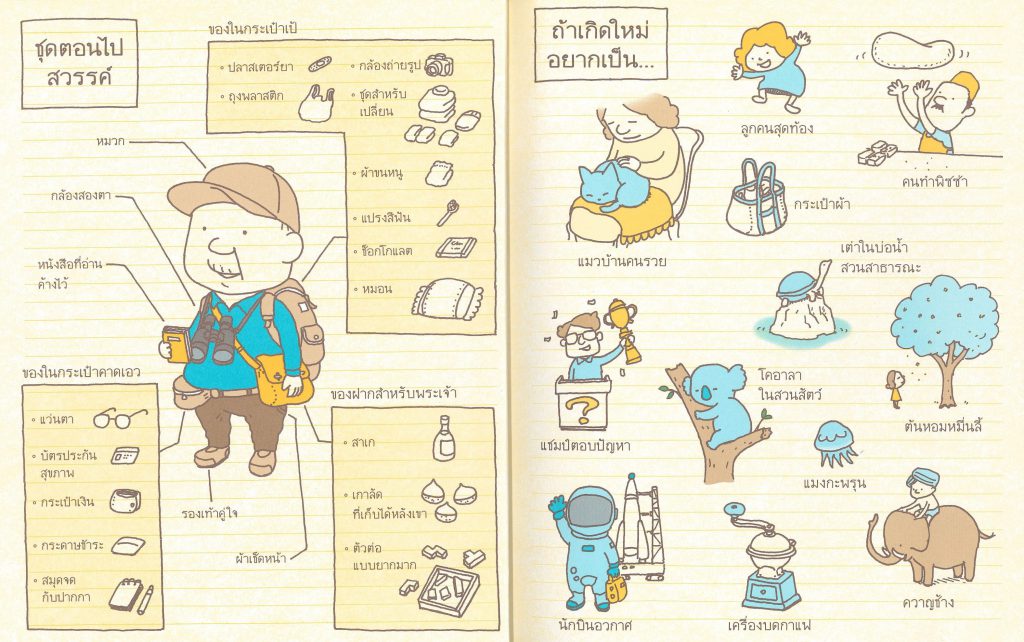 ชุดตอนไป
สวรรค์
ของในกระเป๋าเป้
• ปลาสเตอร์ยา
• ถุงพลาสติก
• กล้องถ่ายรูป
• ชุดสำหรับ
เปลี่ยน
• ผ้าขนหนู
• แปรงสีฟัน
• ช็อกโกแลต
• หมอน
หมวก
กล้องสองตา
หนังสือที่อ่าน
ค้างไว้
ของในกระเป๋าคาดเอว
• แว่นตา
• บัตรประกัน
สุขภาพ
• กระเป๋าเงิน
• กระดาษชำระ
• สมุดจด
กับปากกา
รองเท้าคู่ใจ
ผ้าเช็ดหน้า
ของฝากสำหรับพระเจ้า
• สาเก
• เกาลัด
ที่เก็บได้หลังเขา
• ตัวต่อ
แบบยากมาก
ถ้าเกิดใหม่
อยากเป็น...
ลูกคนสุดท้อง
คนทำพิซซ่า
แมวบ้านคนรวย
กระเป๋าผ้า
เต่าในบ่อน้ำ
สวนสาธารณะ
?
แชมป์ตอบปัญหา
โคอาลา
ในสวนสัตว์
ต้นหอมหมื่นลี้
แมงกะพรุน
นักบินอวกาศ
เครื่องบดกาแฟ
ควาญช้าง